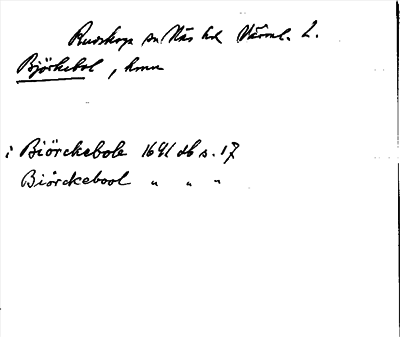 Rudskoga sn Näs hd Värml. L.
Björkebol, hmn
i Biörckebole 1641 db s. 17
Biörckebool " " "